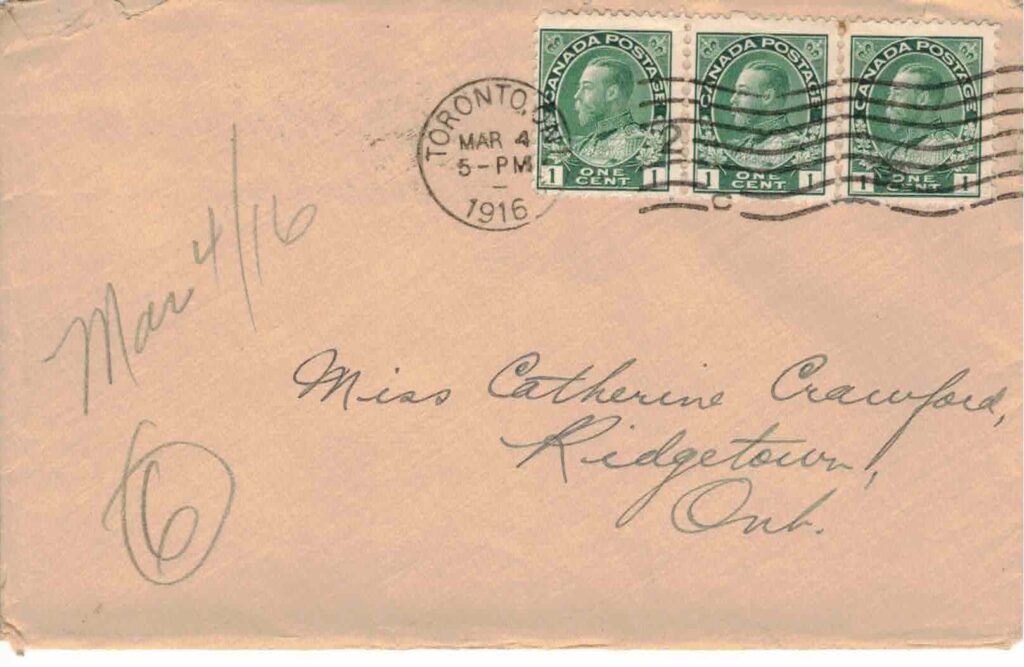 TORONTO, ONT
MAR 4
5-PM
1916
2
C
CANADA POSTAGE
1 ONE CENT 1
CANADA POSTAGE
1 ONE CENT 1
CANADA POSTAGE
1 ONE CENT 1
Mar 4/16
6
Miss Catherine Crawford,
Ridgetown,
Ont.